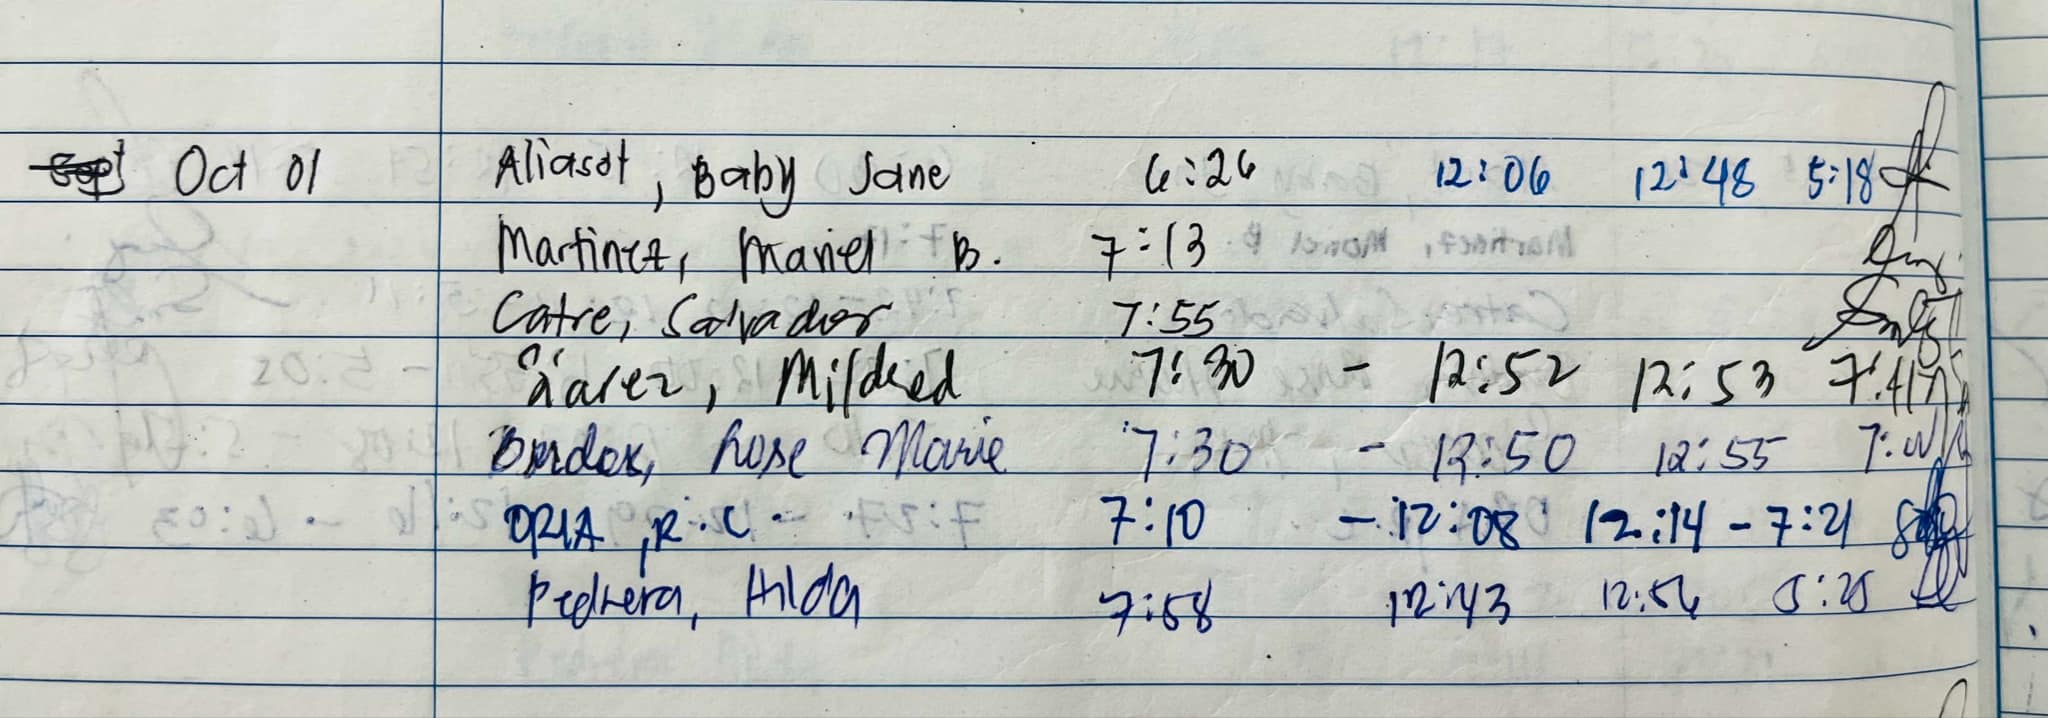 Oct 01 Aliasot, Baby Jane 6:26 12:06 12:48 5:18
Martinez, Mariel B. 7:13
Catre, Salvador 7:55
Mildred 7:30 - 12:52 12:53
Rose Marie 7:30 - 12:50 12:55
ORIA, R.C. 7:10 - 12:08 12:14 - 7:21
Pedrera, Hilda 7:58 12:43 12:56 5:25